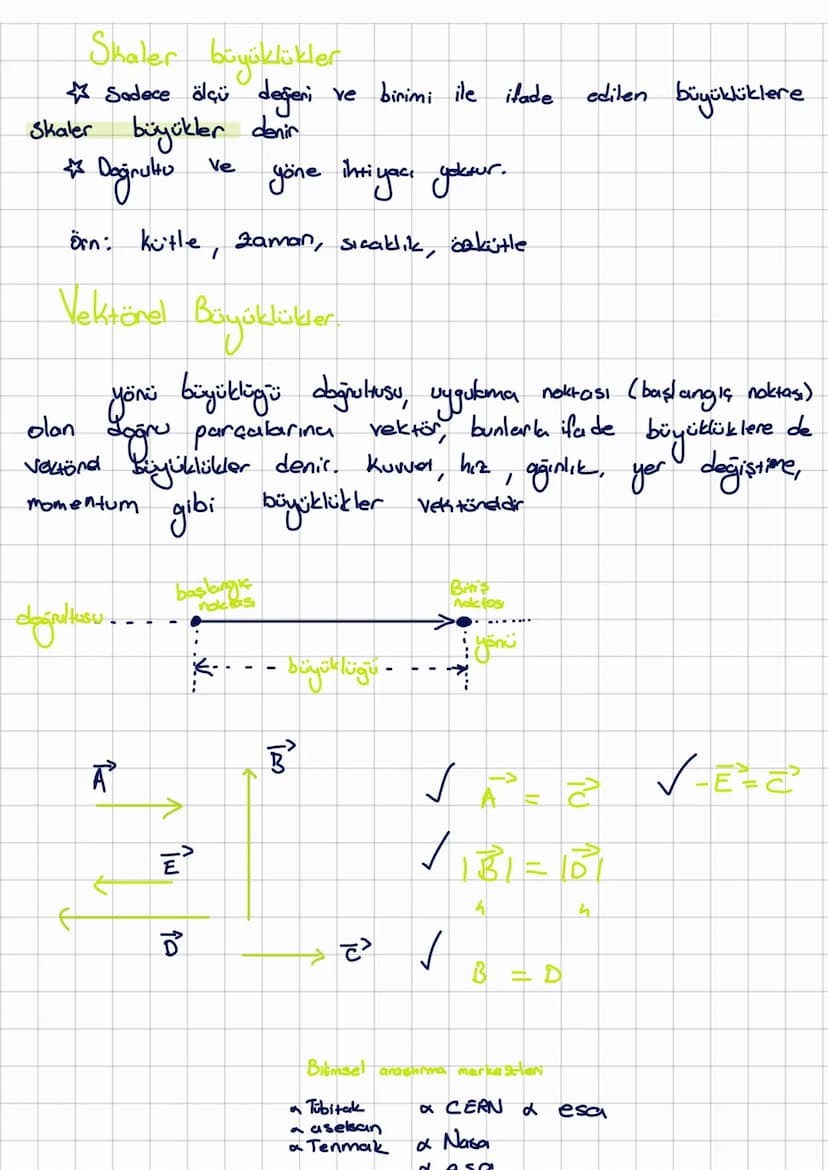 Skaler büyüklükler
☆ Sadece ölçü değeri ve birimi ile ifade edilen büyüklüklere
Skaler büyükler denir
☆ Doğrultu ve yöne ihtiyacı yoktur.
örn: kütle, zaman, sıcaklık, özkütle
Vektörel Büyüklükler.
yönü büyüklüğü doğrultusu, uygulama noktası (başlangıç noktası)
olan doğru parçalarına vektör, bunlarla ifade büyüklüklere de
vektörel büyüklükler denir. Kuvvet, hız, ağırlık, yer değiştime,
momentum gibi büyüklükler vektöreldir
başlangıç noktası
Bitiş noktası
doğrultusu
yönü
büyüklüğü
A→
B→
✓ A→ = C→
✓ -E→ = C→
E→
✓ |B→| = |D→|
4 4
D→
C→
✓ B = D
Bilimsel araştırma merkezleri
α Tübitak α CERN α esa
α aselsan
α Tenmak α Nasa